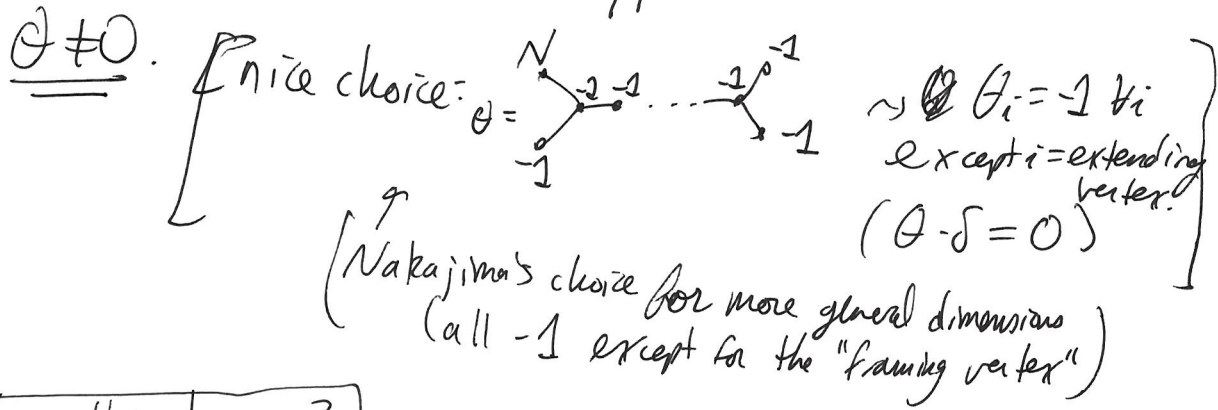 θ≠0. [nice choice: θ = N -1 -1 -1 ... -1 -1 -1 ⇝ θᵢ = -1 ∀i
except i = extending
vertex.
(θ·δ = 0)]
(Nakajima's choice for more general dimensions
(all -1 except for the "framing vertex")